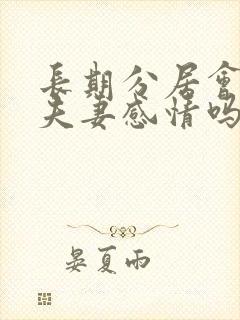 長期分居會
夫妻感情吗
晏夏雨